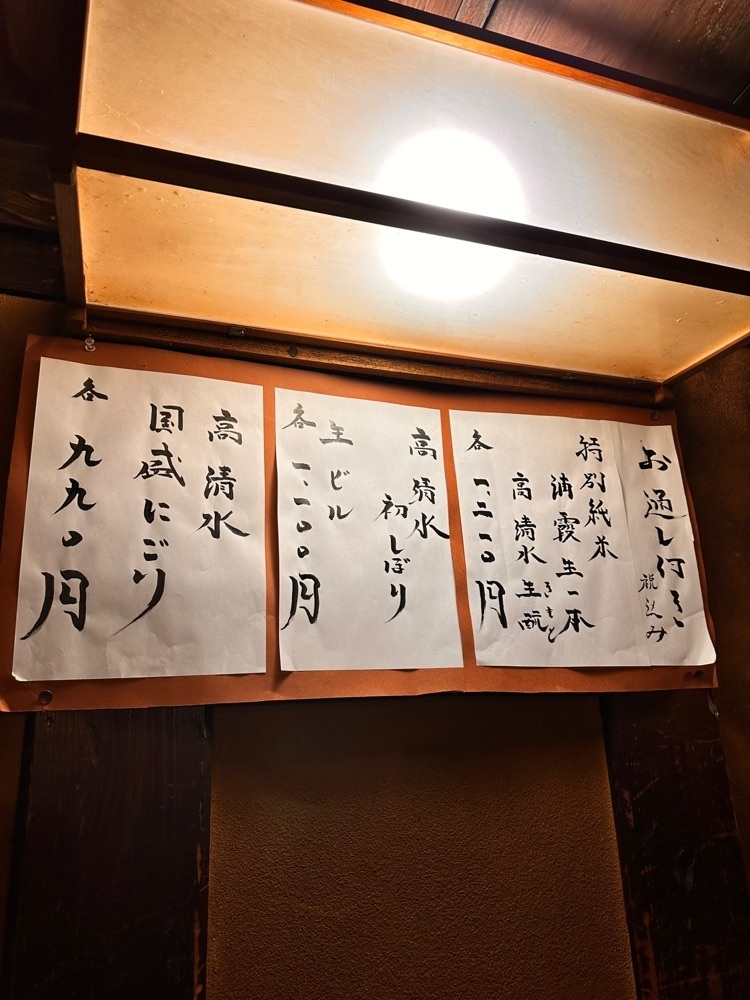 お通し付き
税込み
特別純米
浦霞生一本
高清水生酛
きもと
各一、二一〇円
高清水
初しぼり
生ビル
各一、一〇〇円
高清水
国盛にごり
各九九〇円